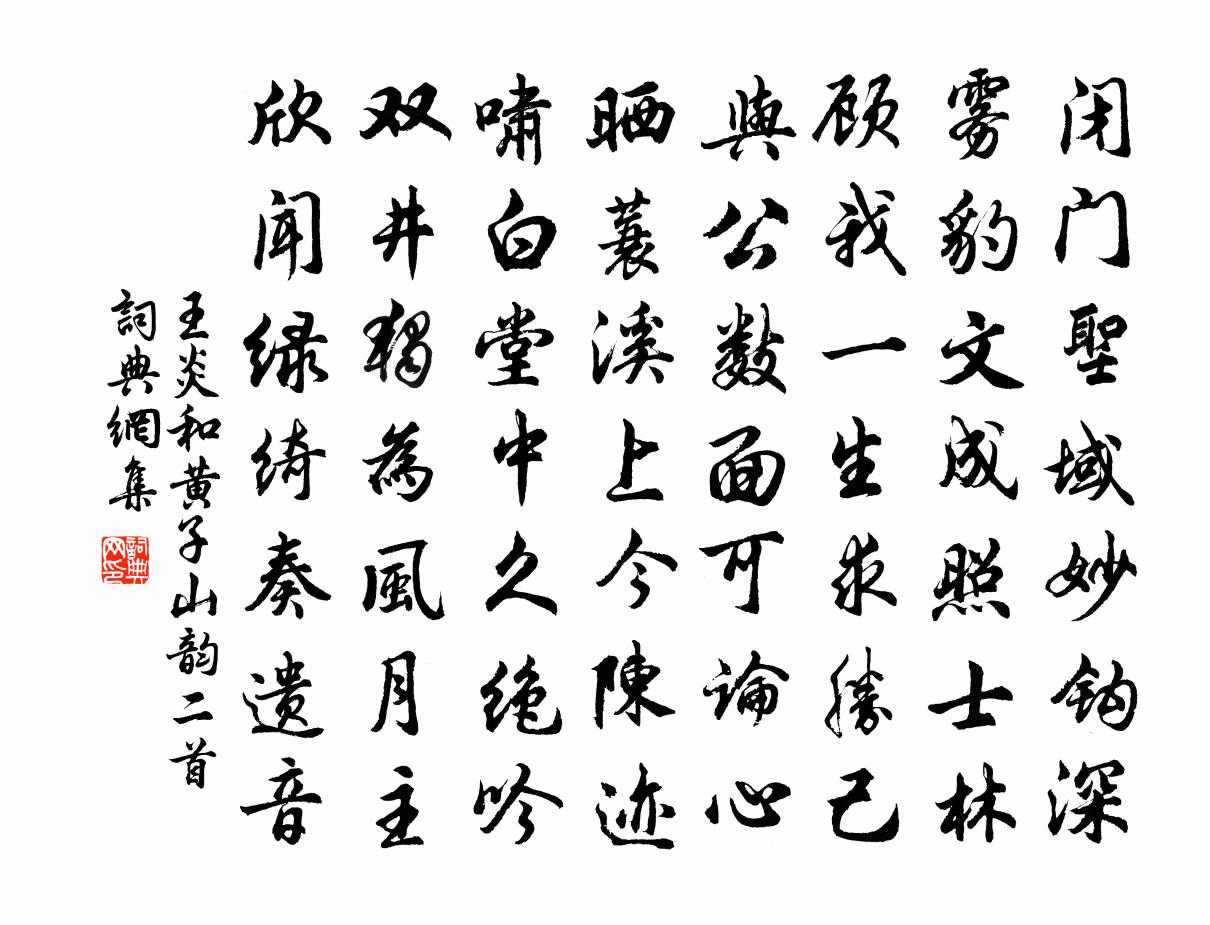 闭门聖域妙钩深
雾豹文成照士林
顾我一生求勝己
與公数面可論心
晒蓑溪上今陳迹
啸白堂中久绝吟
双井独為風月主
欣闻绿绮奏遗音
王炎和黄子山韵二首
詞典網集
詞典网印